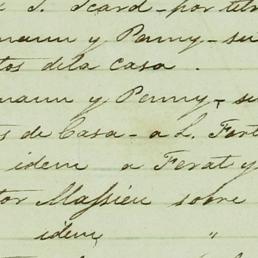 J. Icard - por
mann y Penny - su
tos dela casa.
mann y Penny - su
s de Casa - a L. Fort
idem a Ferat y
tor Massieu sobre
idem "